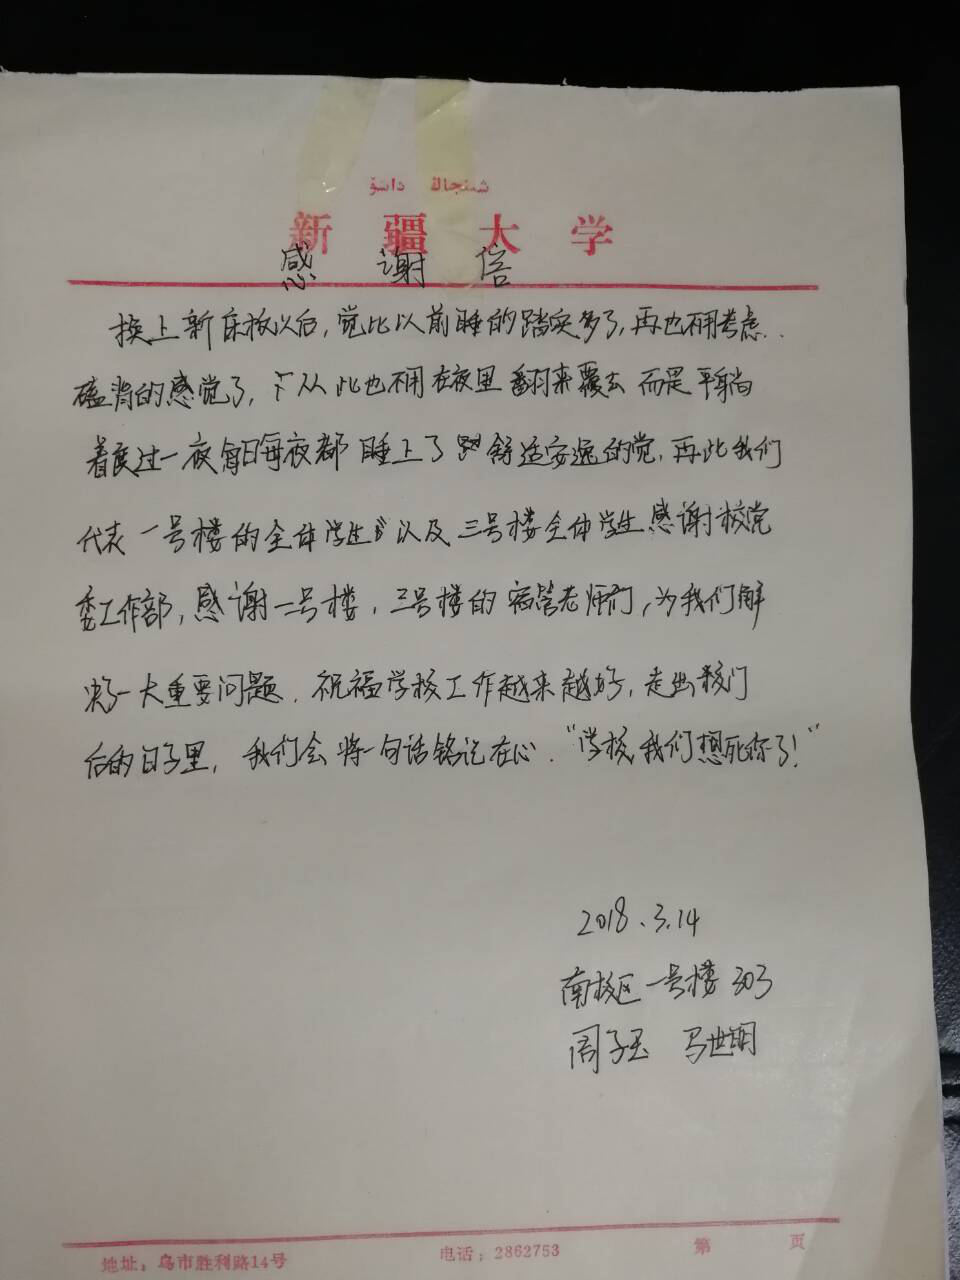 شىنجاڭ داشۆ
新疆大学
感谢信
换上新床板以后,觉比以前睡的踏实多了,再也不用考虑..
磕背的感觉了,从此也不用在夜里翻来覆去而是平躺
着度过一夜每日每夜都睡上了舒适安逸的觉,再此我们
代表一号楼的全体学生以及三号楼全体学生感谢校党
委工作部,感谢一号楼,三号楼的宿管老师们,为我们解
决了一大重要问题.祝福学校工作越来越好,走出校门
后的日子里,我们会将一句话铭记在心.“学校,我们想死你了!”
2018.3.14
南校区一号楼303
周子玉 马世明
地址:乌市胜利路14号 电话:2862753 第 页